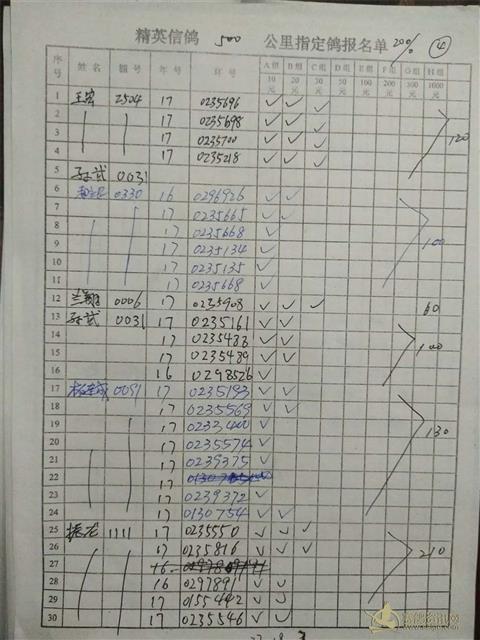 精英信鸽 500 公里指定鸽报名单 20% ④
序号 姓名 棚号 年号 环号 A组10元 B组20元 C组30元 D组50元 E组100元 F组200元 G组300元 H组1000元
1 王宏 2504 17 0235696 ✓ ✓ ✓
2 17 0235698 ✓ ✓ ✓
3 17 0235700 ✓ ✓ ✓ 120
4 17 0235218 ✓ ✓ ✓
5 孙武 0031
6 0330 16 0296926 ✓ ✓
7 17 0235665 ✓ ✓
8 17 0235668 ✓
9 17 0235134 ✓ 100
10 17 0235135 ✓
11 17 0235668 ✓
12 兰翔 0006 17 0235908 ✓ ✓ ✓ 60
13 孙武 0031 17 0235161 ✓ ✓
14 17 0235488 ✓ ✓
15 17 0235489 ✓ ✓ 100
16 16 0298526 ✓
17 0091 17 0235193 ✓ ✓
18 17 0235569 ✓ ✓
19 17 0233400 ✓
20 17 0235574 ✓ 130
21 17 0239375 ✓
22 17
23 17 0239372 ✓
24 17 0130754 ✓ ✓
25 振龙 1111 17 0235550 ✓ ✓ ✓
26 17 0235816 ✓ ✓ ✓
27 16 210
28 16 0297891 ✓ ✓
29 17 0155442 ✓ ✓
30 17 0235546 ✓ ✓